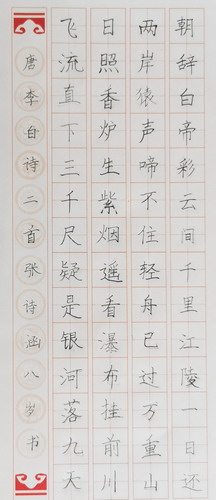 朝辞白帝彩云间千里江陵一日还
两岸猿声啼不住轻舟已过万重山
日照香炉生紫烟遥看瀑布挂前川
飞流直下三千尺疑是银河落九天
唐李白诗二首张诗涵八岁书